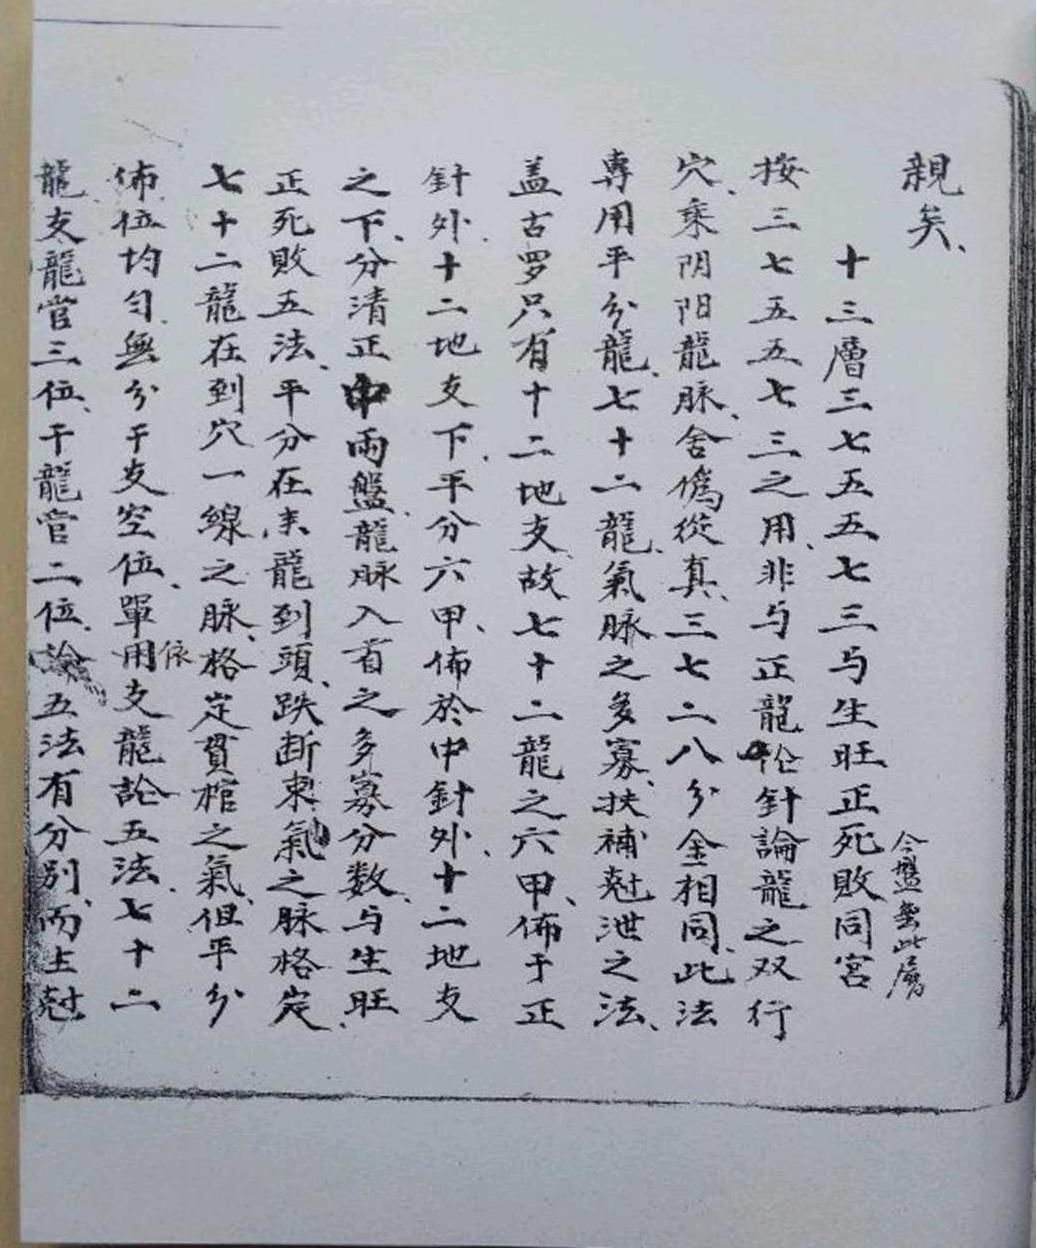 親矣、
十三層三七五五七三与生旺正死敗同宮
今盤無此層
按三七五五七三之用、非与正龍論針論龍之双行
穴、乘阴阳龍脉、舍僞從真、三七二八分金相同、此法
專用平分龍、七十二龍、氣脉之多寡、扶補尅泄之法、
盖古罗只有十二地支、故七十二龍之六甲、佈于正
針外、十二地支下、平分六甲、佈於中針外、十二地支
之下、分清正中兩盤、龍脉入首之多寡分数、与生旺
正死敗五法、平分在来龍到頭、跌断束氣之脉格定、
七十二龍在到穴一線之脉、格定貫棺之氣、但平分
佈位均匀、無分干支空位、單用支龍論五法、七十二
依
龍、支龍官三位、干龍官二位、論五法有分別、而生尅